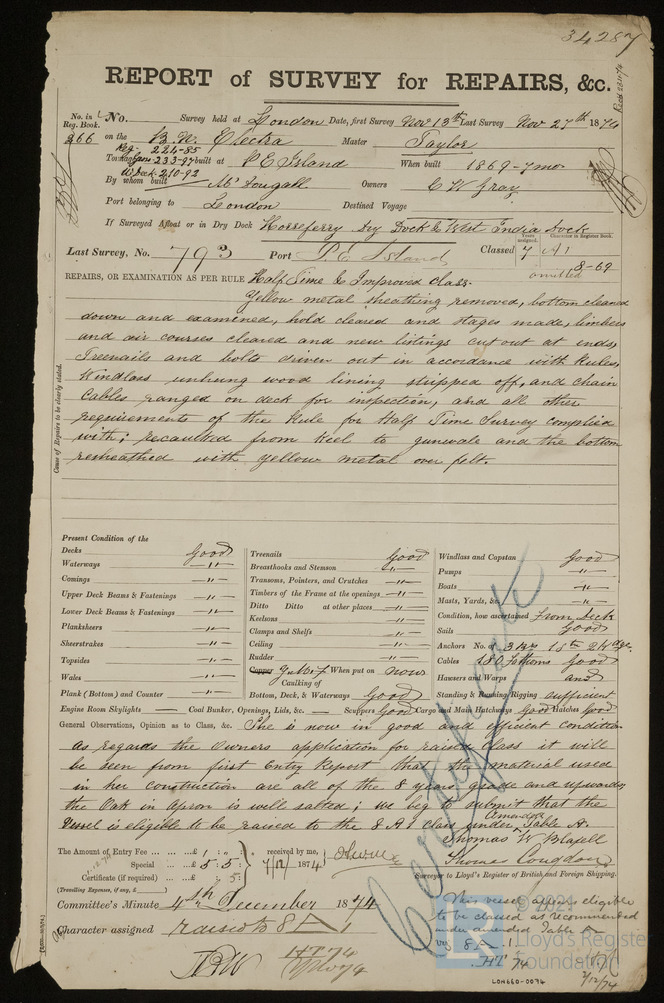 34287
REPORT of SURVEY for REPAIRS, &c.
No. in Reg. Book. No. Survey held at London Date, first Survey Nov 13th Last Survey Nov 27th 1874
266 on the Bk Electra Master Taylor
Reg. 224-85
Tonnage Gross 233-97 built at P E Island When built 1869-7mo
U Deck 210-92
By whom built McDougall Owners C W Gray
Port belonging to London Destined Voyage
If Surveyed Afloat or in Dry Dock Horseferry Dry Dock & West India Dock
Years assigned. Character in Register Book.
Last Survey, No. 793 Port P. E. Island Classed 7 A1
omitted 8-69
REPAIRS, OR EXAMINATION AS PER RULE Half Time & Improved class.
Yellow metal sheathing removed, bottom cleaned
down and examined, hold cleared and stages made, limbers
and air courses cleared and new listings cut out at ends,
Treenails and bolts driven out in accordance with Rules,
Windlass unhung wood lining stripped off, and chain
Cables ranged on deck for inspection, and all other
requirements of the Rule for Half Time Survey complied
with; recaulked from Keel to gunwale and the bottom
resheathed with yellow metal over felt.
Cause of Repairs to be clearly stated.
Present Condition of the
Decks Good
Waterways "
Comings "
Upper Deck Beams & Fastenings "
Lower Deck Beams & Fastenings "
Planksheers "
Sheerstrakes "
Topsides "
Wales "
Plank (Bottom) and Counter "
Treenails Good
Breasthooks and Stemson "
Transoms, Pointers, and Crutches "
Timbers of the Frame at the openings "
Ditto Ditto at other places "
Keelsons "
Clamps and Shelfs "
Ceiling "
Rudder "
Copper Y. M. & f When put on now
Caulking of
Bottom, Deck, & Waterways Good
Windlass and Capstan Good
Pumps "
Boats "
Masts, Yards, &c. "
Condition, how ascertained from deck
Sails Good
Anchors No. of 3
Cables 180 fathoms good
Hawsers and Warps and
Standing & Running Rigging sufficient
Engine Room Skylights — Coal Bunker, Openings, Lids, &c. — Scuppers Good Cargo and Main Hatchways Good Hatches Good
General Observations, Opinion as to Class, &c. She is now in good and efficient condition
as regards the Owners application for raised class it will
be seen from first Entry Report that the material used
in her construction are all of the 8 years grade and upwards
the Oak in Apron is well salted; we beg to submit that the
Vessel is eligible to be raised to the 8 A1 class under Amended Table A.
Certificate
Thomas W Blabell
Thomas Congdon
Surveyor to Lloyd's Register of British and Foreign Shipping.
The Amount of Entry Fee ... £ : " : received by me,
Special ... £ 5 : 5 : 7/12/1874
Certificate (if required) ... £ : 5 :
(Travelling Expenses, if any, £ )
Committee's Minute 4th December 1874
Character assigned raised to 8 A 1
This vessel appears eligible
to be classed as recommended
under amended Table A
viz 8 A 1.
HT 74
HT 74
2/12/74
© 2021
Lloyd's Register
Foundation
LON660-0074